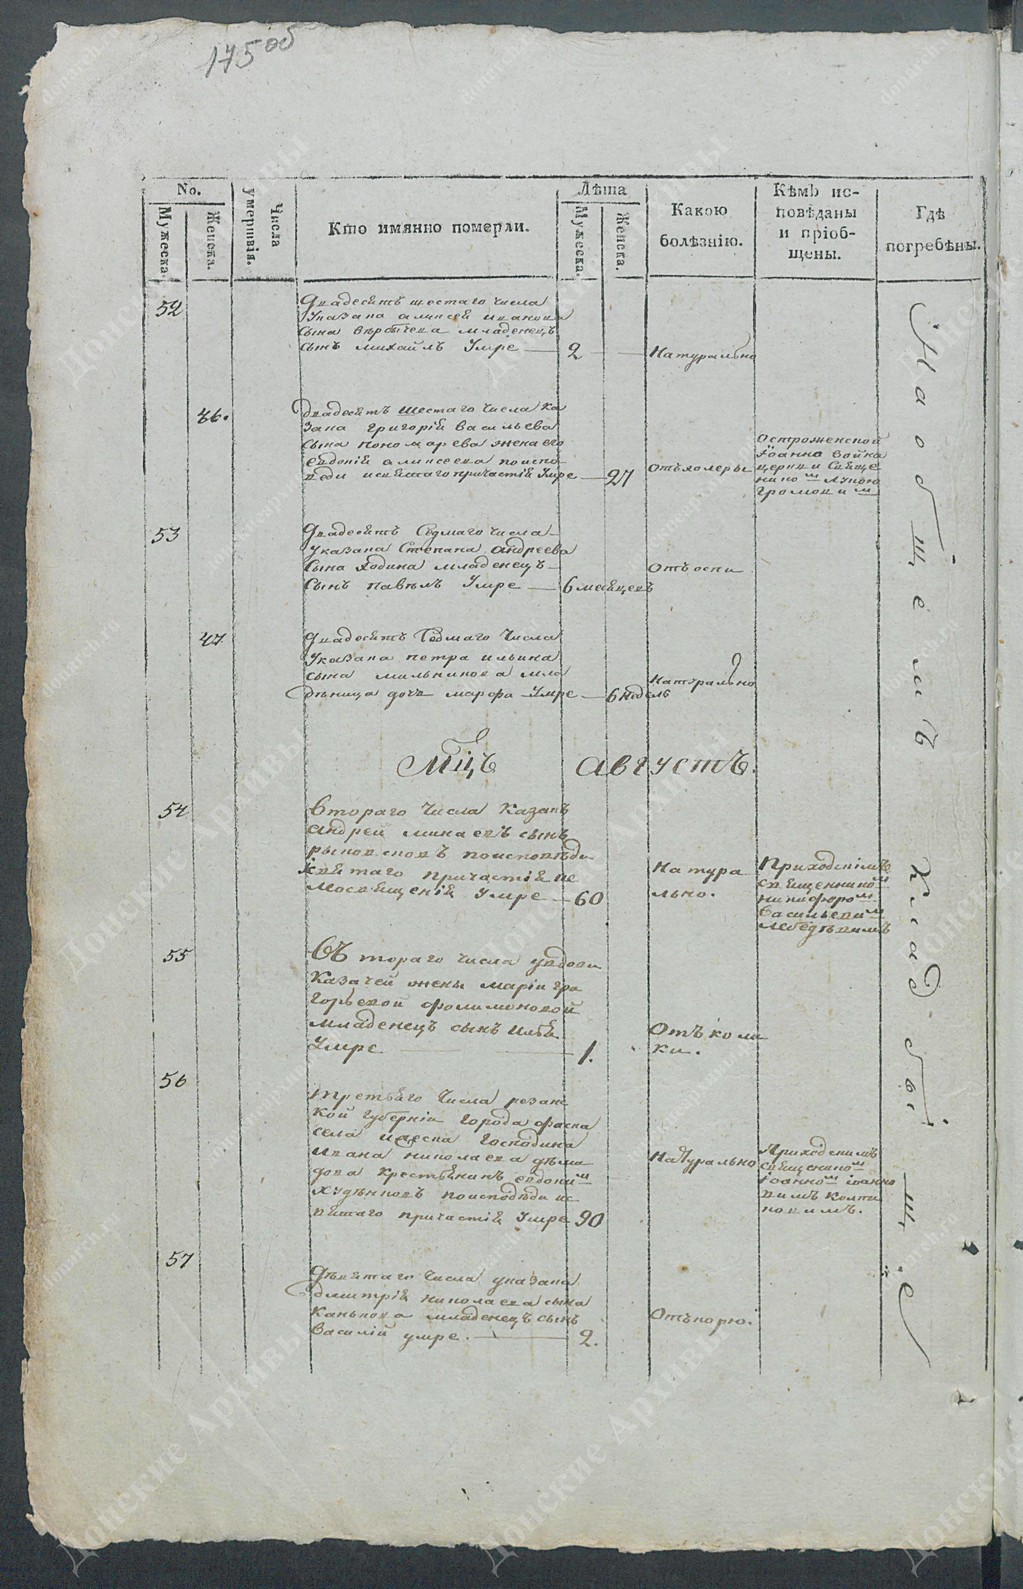 175 об
No.
Мужеска.
Женска.
Числа умершвія.
Кто имянно померли.
Лѣта
Мужеска.
Женска.
Какою
болѣзнію.
Кѣмъ ис-
повѣданы
и пріоб-
щены.
Гдѣ
погребѣны.
52
Двадесять шестаго числа
Указака аликсей иванова
сына младенецъ
сынъ михайлъ Умре — 2
Натурально
46.
Двадесять шестаго числа ка
зака григорій васильева
сына пономарева жена его
евдокій аликсеева поиспо
веди исвятаго причастій Умре — 27
Отъхолеры
Іоанно война
церкви свяще
нико м Лукою
Громови м
53
Двадесять Седмаго числа
Указака Степана андреева
Сына младенецъ
Сынъ павелъ Умре — 6 месяцевъ
Отъоспи
47.
Двадесять Седмаго Числа
Указака петра ильина
сына мильникова мла
дѣница дочь марфа Умре — 6 недѣль
Натурально
Мцъ августъ.
54
Втораго Числа Казакъ
андрей минаевъ сынъ
поисповѣди
Исвятаго причастій ие
лосвященій Умре — 60
Натура
льно.
Приходскімъ
священнико м
никифоро м
васильеви м
лебедѣвимъ
55
Въ тораго числа увдови
Казачей жены маріи гри
горьевой филимоновой
младенецъ сынъ
Умре — 1.
Отъ коли
ки.
56
третьяго Числа резанс
кой губерніи города
села господина
ивана николаева дѣмы
дова крестьянинъ евдоки м
поисповѣди ис
вятаго причастій Умре 90
Натурально
Приходскимъ
священико м
іоанно м іоанно
вимъ
57
Девятаго числа указака
дмитрія николаева сына
младенецъ сынъ
василій умре. — 2.
Откорю.
На общемъ кладбищѣ